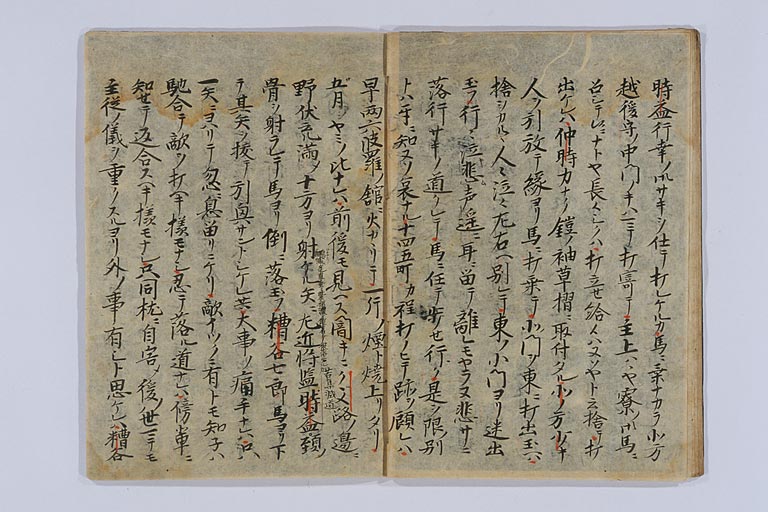 時益行幸ノ御サキヲ仕テ打レケルカ馬ニ乗ナカラ北ノ方
越後守中門ノキハニテ打寄テ主上ハハヤ寮ノ御馬ニ
召レテ候ニナトヤ長々シクハ打立セ給ハヌソヤト云捨テ打
出ケレハ仲時力ナク鎧ノ袖草摺ニ取付タル北ノ方少キ
人ヲ引放テ縁ヨリ馬ニ打乗テ北門ヲ東ニ打出玉ヘハ
捨ラルル人々泣々左右ヘ別レテ東ノ小門ヨリ迷出
玉フ行々泣悲声遥ニ耳ニ留テ離レモヤラヌ悲サニ
落行サキノ道クレテ馬ニ任テ歩セ行ク是ヲ限ノ別
トハ互ニ知ヌソ哀ナル十四五町カ程打ノヒテ跡ヲ顧レハ
早両六波羅ノ舘ニ火カケテ一片ノ煙ト焼上リタリ
五月ヤミノ比ナレハ前後モ見ヘス闇キニ路ノ邊ニ
野伏充満シテ十方ヨリ射ケル矢ニ左近将監時益頸ノ
骨ヲ射ラレテ馬ヨリ倒ニ落玉フ糟谷七郎馬ヨリ下
テ其矢ヲ抜テ引興サントシケレ共大事ノ痛手ナレハ只
一矢ニヨリテ忽ニ息留リニケリ敵有トモ知子ハ
馳合テ敵ヲ打ヘキ様モナシ忍テ落ル道ナレハ傍輩ニ
知セテ返合スヘキ様モナシ只同枕ニ自害シテ後ノ世ニテモ
主従ノ儀ヲ重クスルヨリ外ノ事有シト思ケレハ糟谷